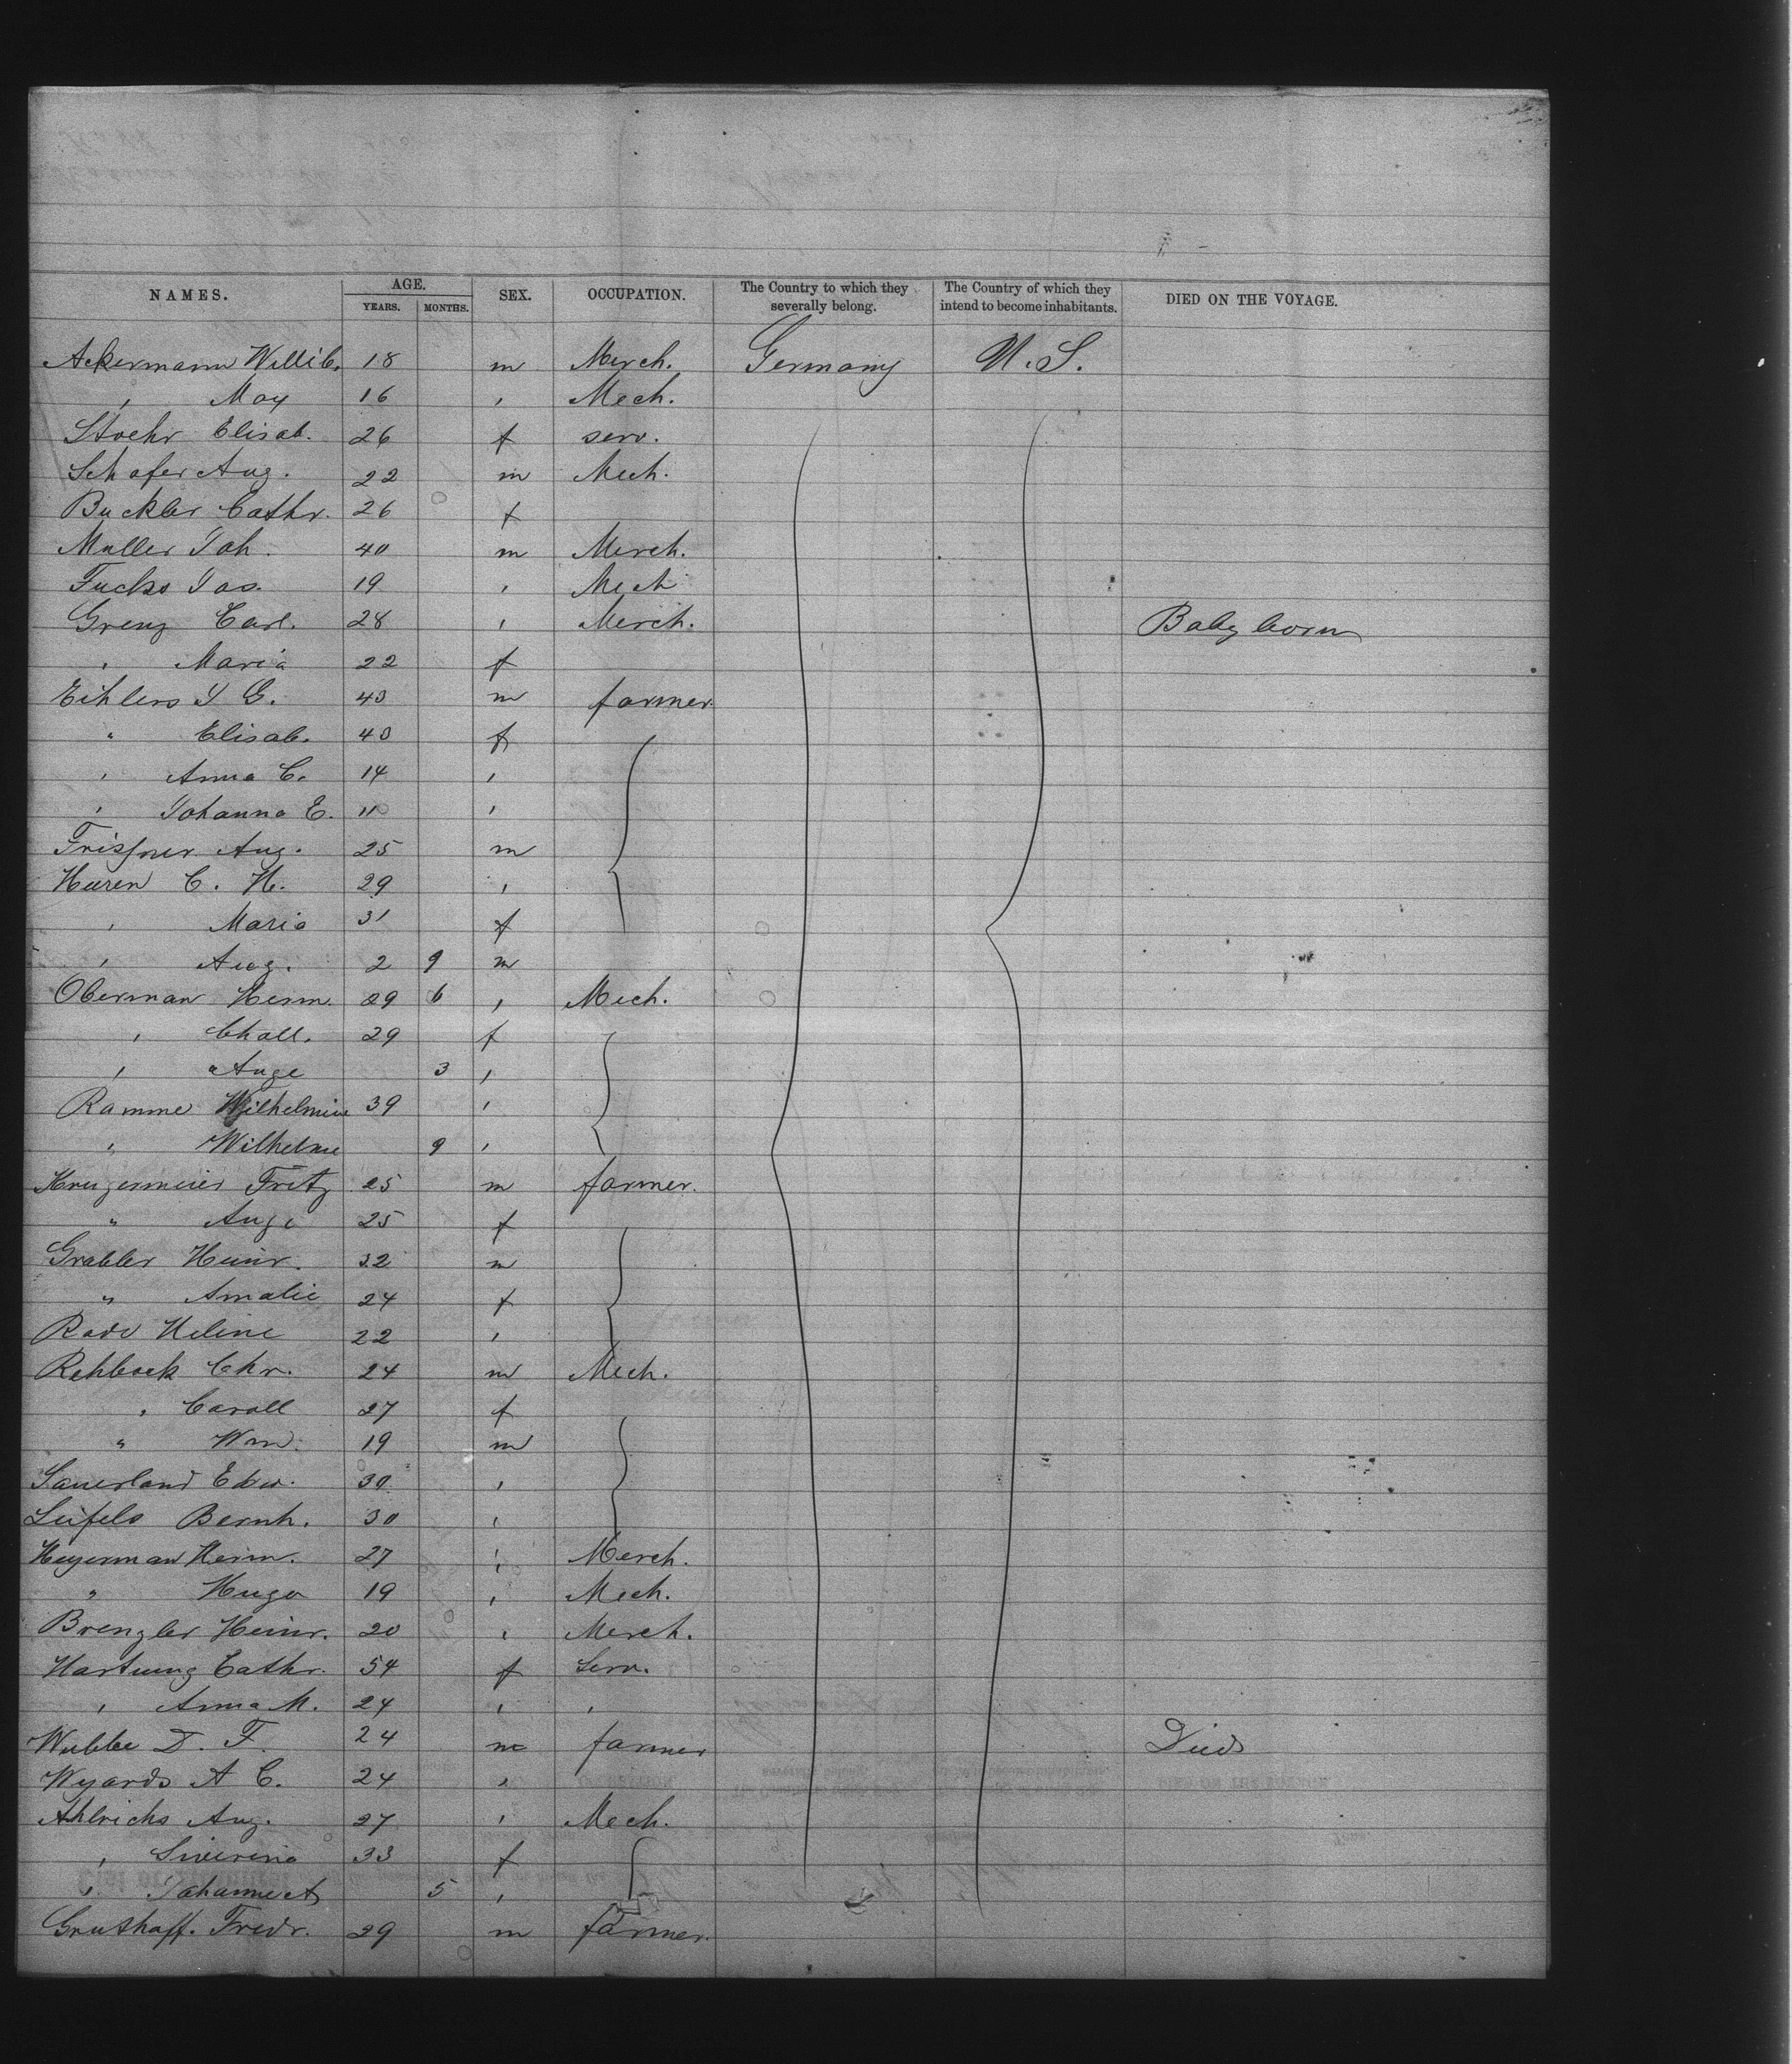 NAMES. AGE. SEX. OCCUPATION. The Country to which they severally belong. The Country of which they intend to become inhabitants. DIED ON THE VOYAGE.
YEARS. MONTHS.
Ackermann Willib. 18 m Merch. Germany U.S.
, Max 16 , Mech.
Stoehr Elisab. 26 f serv.
Schafer Aug. 22 m Mech.
Buckler Cathr. 26 f
Muller Joh. 40 m Merch.
Fuchs Jas. 19 , Mech
Grenz Carl. 28 , Merch. Baby born
, Maria 22 f
Eihlers J G. 43 m farmer
" Elisab. 43 f
, Anna C. 14 ,
, Johanna E. 11 ,
Aug. 25 m
Huren C. H. 29 ,
, Maria 31 f
, Aug. 2 9 m
Oberman Herm. 29 6 , Mech.
, Chall. 29 f
, Auge 3 ,
Ramme Wilhelmine 39 ,
" Wilhelme 9 ,
Fritz 25 m farmer.
" Auge 25 f
Grabler Heinr. 32 m
" Amalie 24 f
Rade Heline 22 ,
Rehbock Chr. 24 m Mech.
, Caroll 27 f
" Wm. 19 m
Sauerland Edw. 30 ,
Leifels Bernh. 30 ,
Heyerman Herm. 27 , Merch.
" Hugo 19 , Mech.
Brenzler Heinr. 20 , Merch.
Hartung Cathr. 54 f Serv.
, Anna M. 24 , ,
Wubbe D. F. 24 m farmer Died
Wyards A C. 24 ,
Ahlrichs Aug. 27 , Mech.
, 33 f
, Johanne A 5 ,
Gruthoff. Fredr. 29 m farmer.